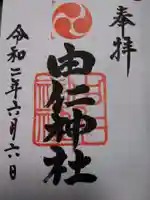 奉拝
由仁神社
令和二年六月六日